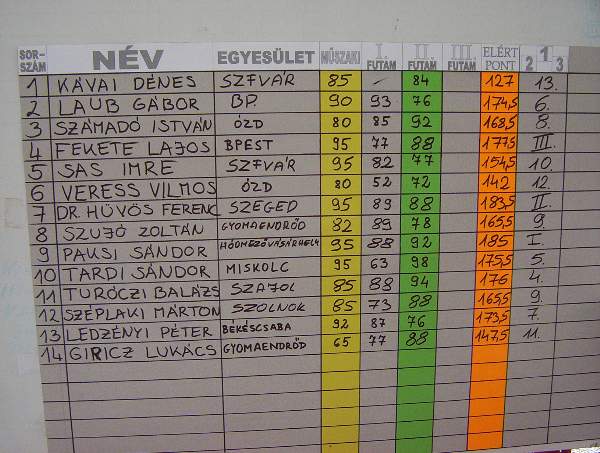 SOR-SZÁM NÉV EGYESÜLET MŰSZAKI I. FUTAM II. FUTAM III. FUTAM ELÉRT PONT 2 1 3
1 KÁVAI DÉNES SZFVÁR 85 - 84 127 13.
2 LAUB GÁBOR BP. 90 93 76 174,5 6.
3 SZÁMADÓ ISTVÁN ÓZD 80 85 92 168,5 8.
4 FEKETE LAJOS BPEST 95 77 88 177,5 III.
5 SAS IMRE SZFVÁR 95 82 77 154,5 10.
6 VERESS VILMOS ÓZD 80 52 72 142 12.
7 DR. HŰVÖS FERENC SZEGED 95 89 88 183,5 II.
8 SZUJÓ ZOLTÁN GYOMAENDRŐD 82 89 78 165,5 9.
9 PAUSI SÁNDOR HÓDMEZŐVÁSÁRHELY 95 88 92 185 I.
10 TARDI SÁNDOR MISKOLC 95 63 98 175,5 5.
11 TURÓCZI BALÁZS SZAJOL 85 88 94 176 4.
12 SZÉPLAKI MÁRTON SZOLNOK 85 73 88 165,5 9.
13 LEDZÉNYI PÉTER BÉKÉSCSABA 92 87 76 173,5 7.
14 GIRICZ LUKÁCS GYOMAENDRŐD 65 77 88 147,5 11.